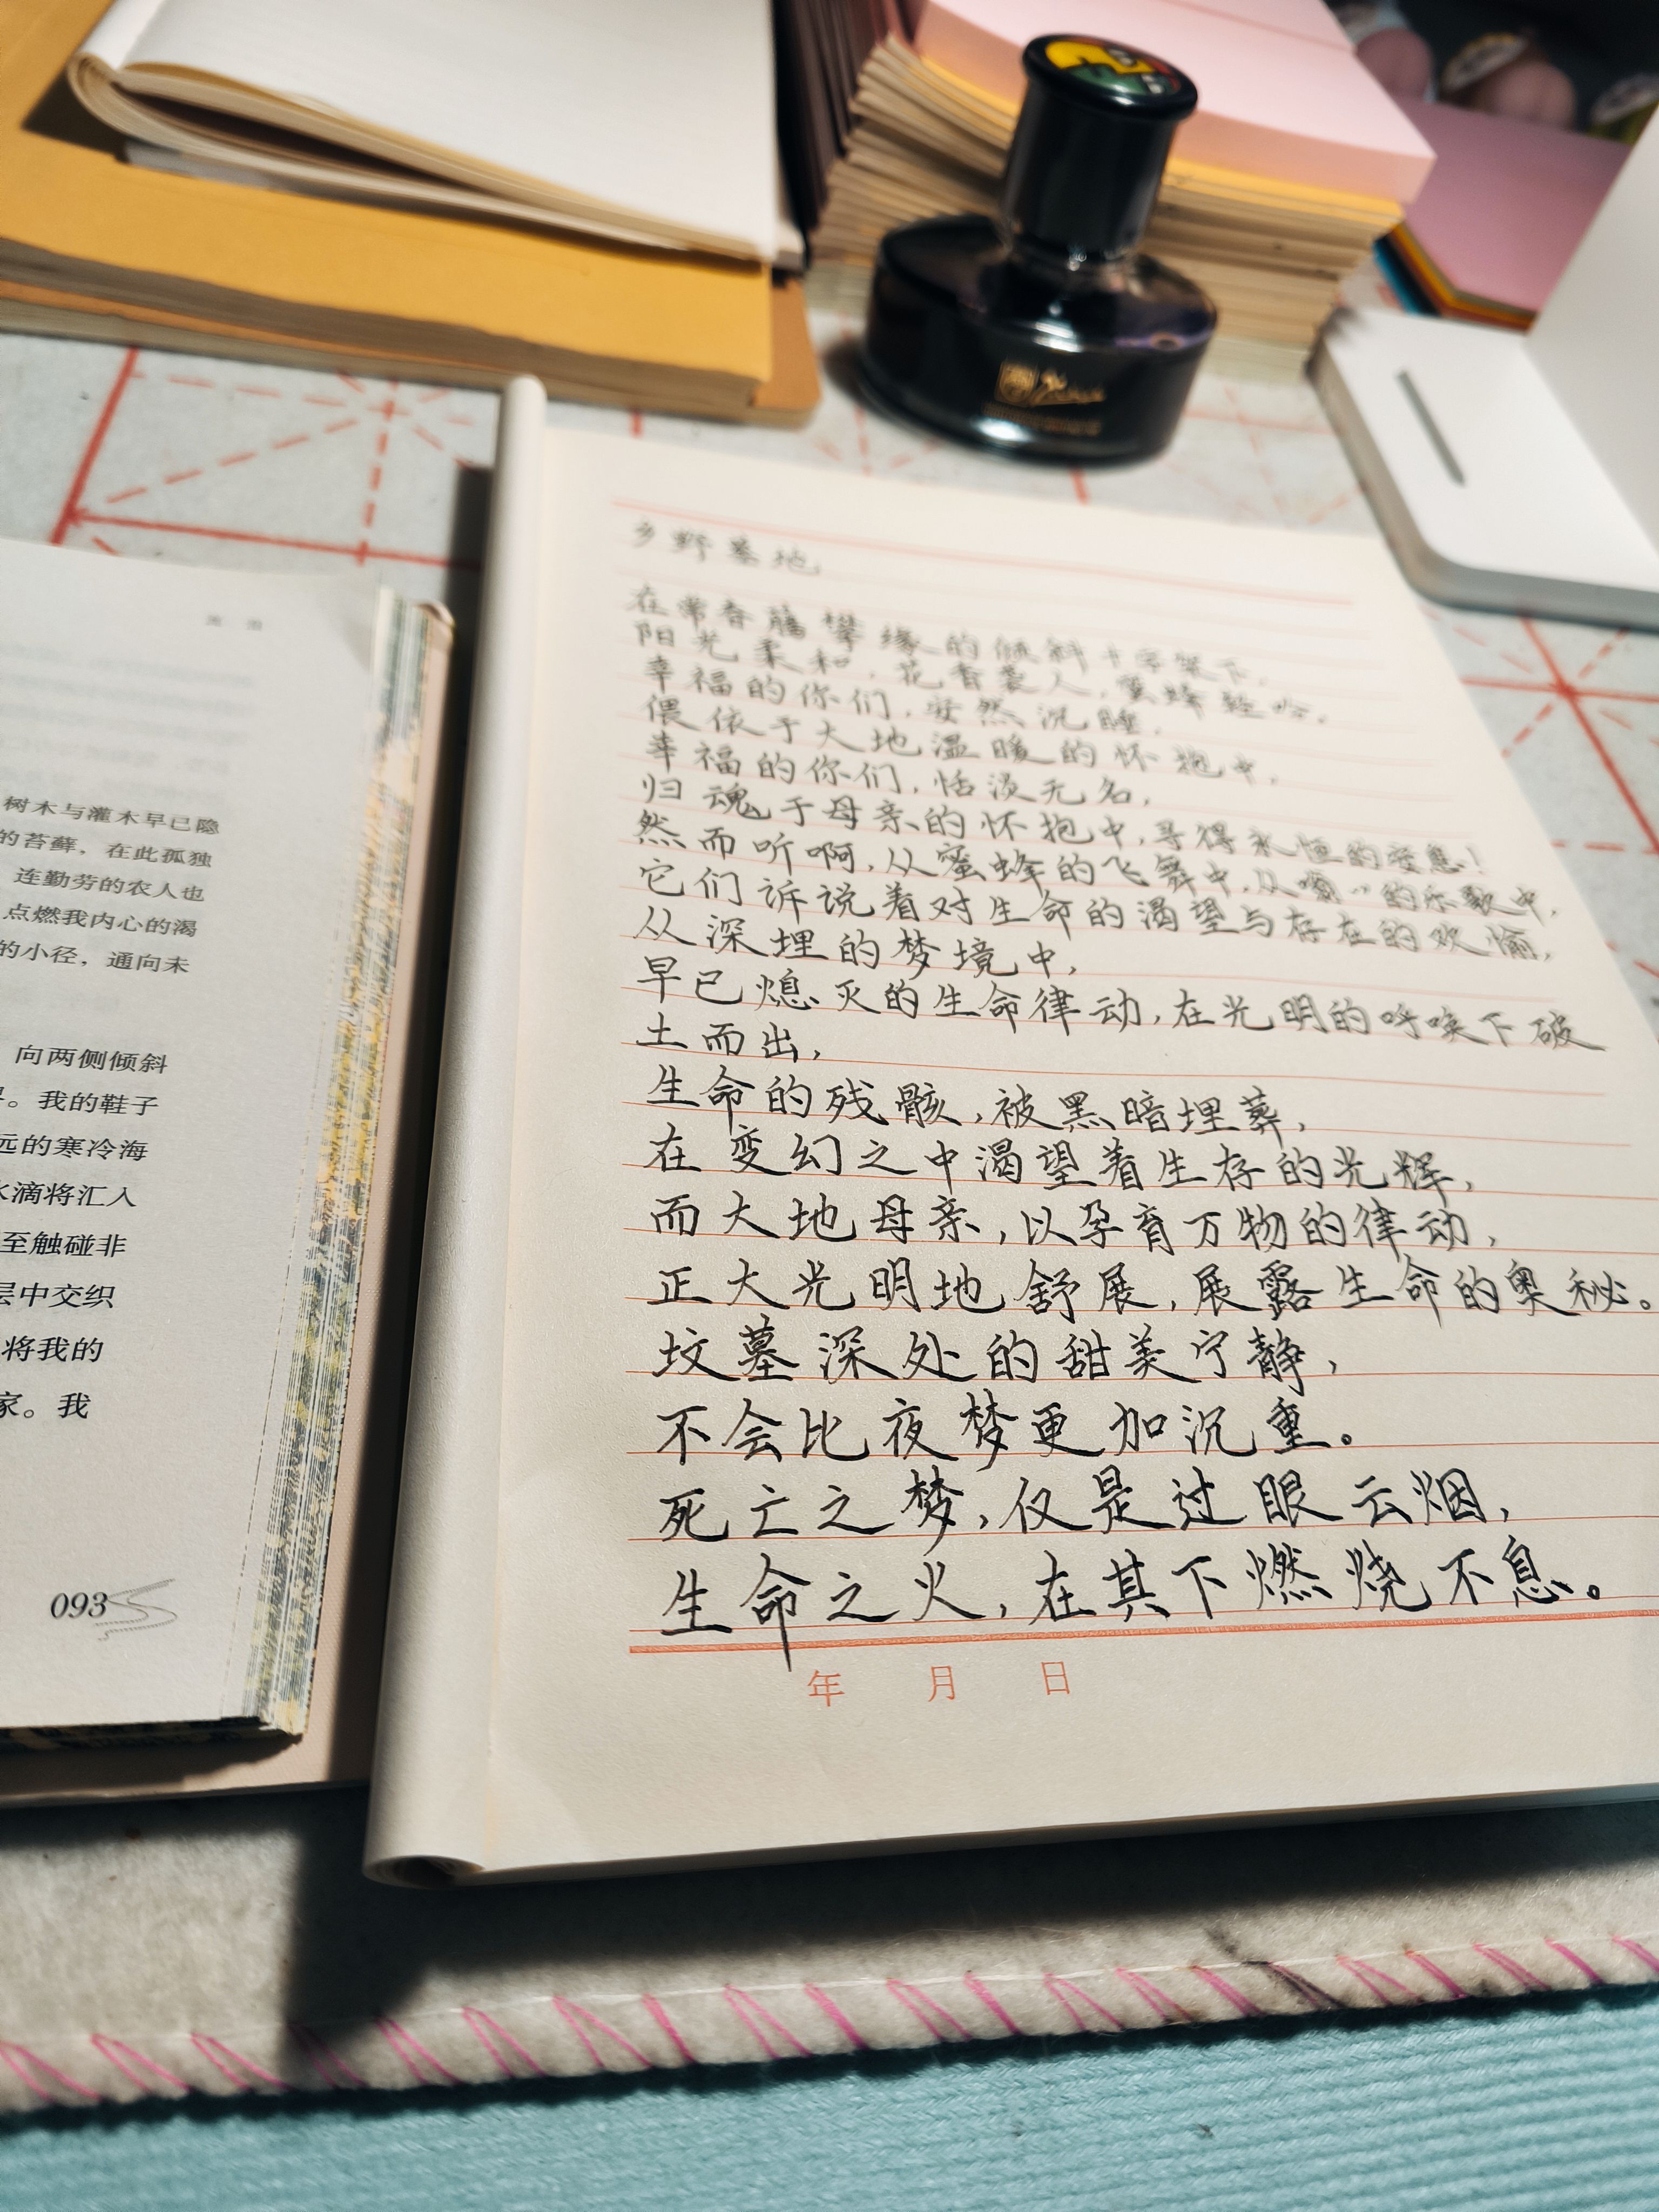 树木与灌木早已隐
的苔藓，在此孤独
连勤劳的农人也
点燃我内心的渴
的小径，通向未
向两侧倾斜
。我的鞋子
远的寒冷海
水滴将汇入
至触碰非
层中交织
将我的
家。我
093
乡野墓地
在常春藤攀缘的倾斜十字架下，
阳光柔和，花香袭人，蜜蜂轻吟，
幸福的你们，安然沉睡，
偎依于大地温暖的怀抱中，
幸福的你们，恬淡无名，
归魂于母亲的怀抱中，寻得永恒的安息！
然而听啊，从蜜蜂的飞舞中，从嗡〃的乐歌中，
它们诉说着对生命的渴望与存在的欢愉，
从深埋的梦境中，
早已熄灭的生命律动，在光明的呼唤下破
土而出，
生命的残骸，被黑暗埋葬，
在变幻之中渴望着生存的光辉，
而大地母亲，以孕育万物的律动，
正大光明地舒展，展露生命的奥秘。
坟墓深处的甜美宁静，
不会比夜梦更加沉重。
死亡之梦，仅是过眼云烟，
生命之火，在其下燃烧不息。
年 月 日